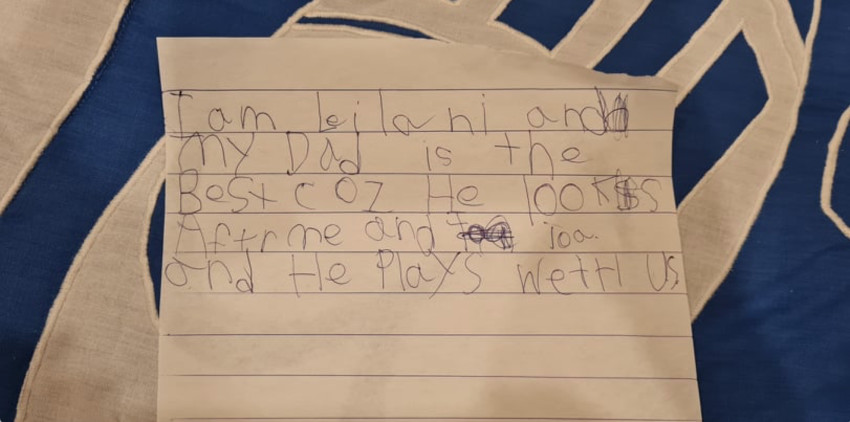 I am Leilani and
My Dad is the
Best coz He looks
Aftr me and ioa.
and He Plays WettH Us